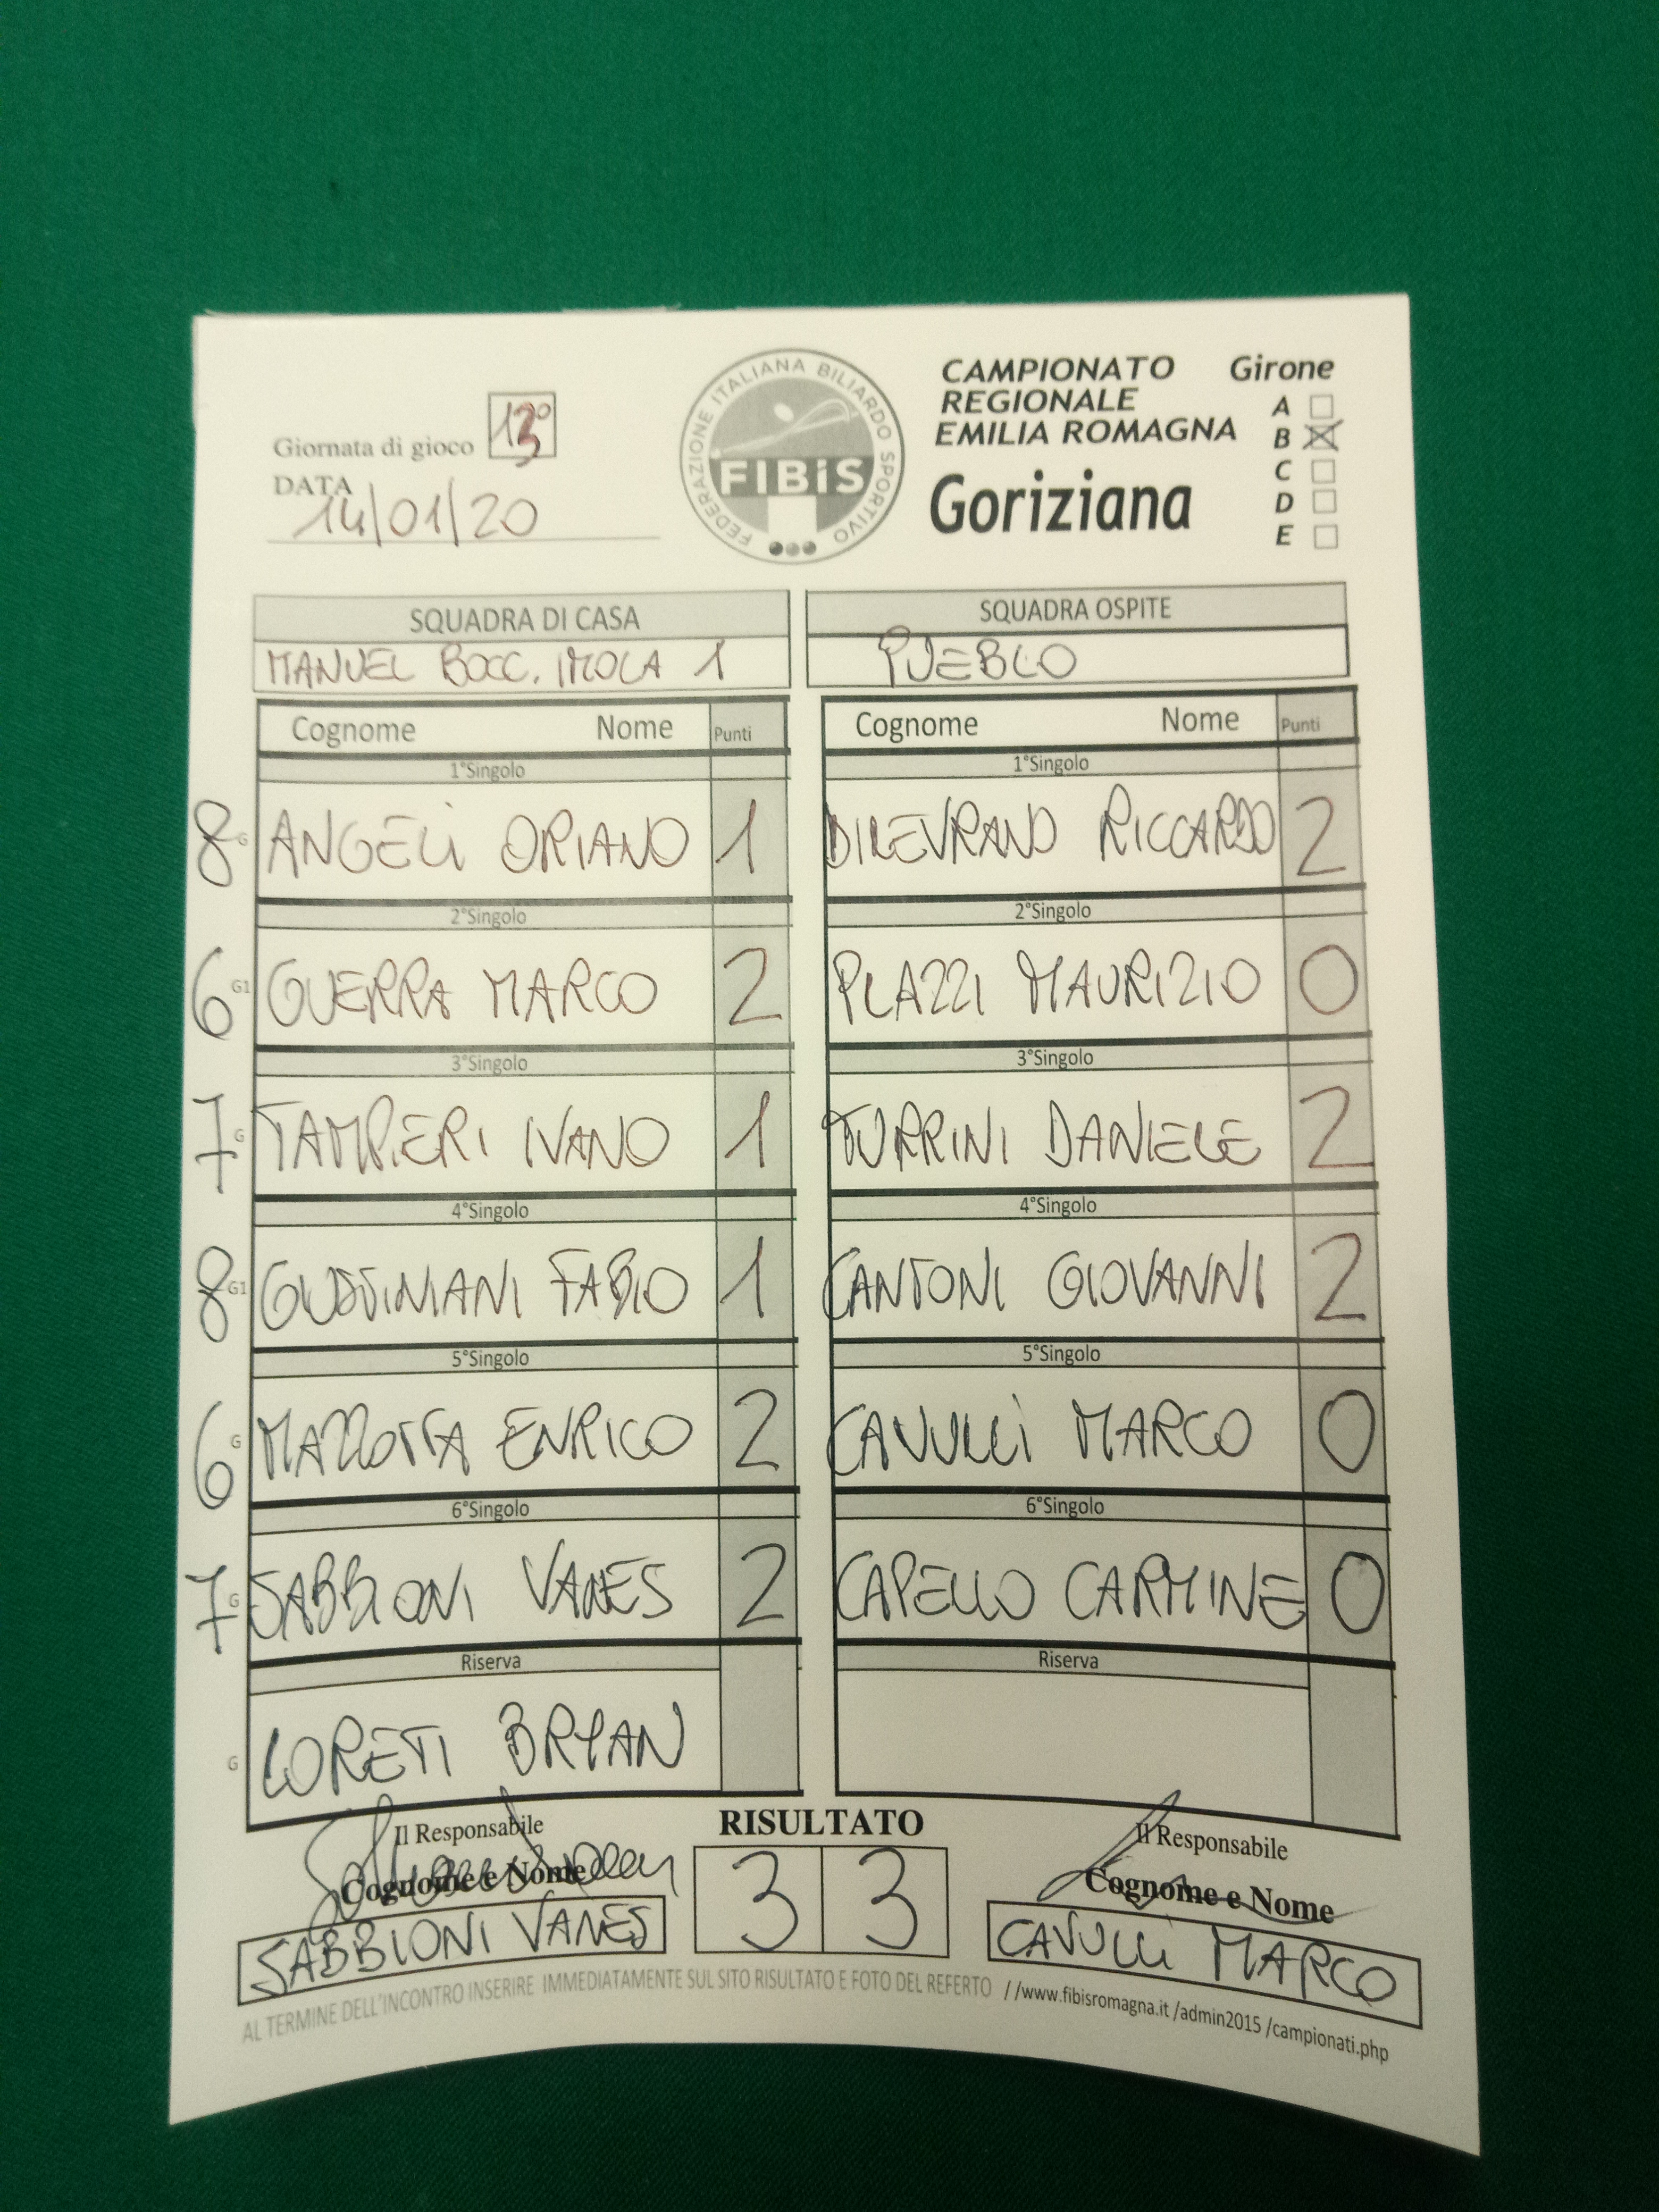 Giornata di gioco 13°
DATA
14/01/20
FEDERAZIONE ITALIANA BILIARDO SPORTIVO
FIBiS
CAMPIONATO
REGIONALE
EMILIA ROMAGNA
Goriziana
Girone
A
B
C
D
E
SQUADRA DI CASA
MANUEL BOCC. IMOLA 1
SQUADRA OSPITE
PUEBLO
Cognome Nome Punti
Cognome Nome Punti
1°Singolo
1°Singolo
8 G ANGELI ORIANO 1
DILEVRANO RICCARDO 2
2°Singolo
2°Singolo
6 G1 GUERRA MARCO 2
PLAZZI MAURIZIO 0
3°Singolo
3°Singolo
7 G TAMPIERI IVANO 1
TURRINI DANIELE 2
4°Singolo
4°Singolo
8 G1 GUSTINIANI FABIO 1
CANTONI GIOVANNI 2
5°Singolo
5°Singolo
6 G MAZZOTTA ENRICO 2
CAVULLI MARCO 0
6°Singolo
6°Singolo
7 G SABBIONI VANES 2
CAPELLO CARMINE 0
Riserva
Riserva
G LORETI BRYAN
Il Responsabile
Cognome e Nome
SABBIONI VANES
RISULTATO
3 3
Il Responsabile
Cognome e Nome
CAVULLI MARCO
AL TERMINE DELL'INCONTRO INSERIRE IMMEDIATAMENTE SUL SITO RISULTATO E FOTO DEL REFERTO //www.fibisromagna.it /admin2015 /campionati.php